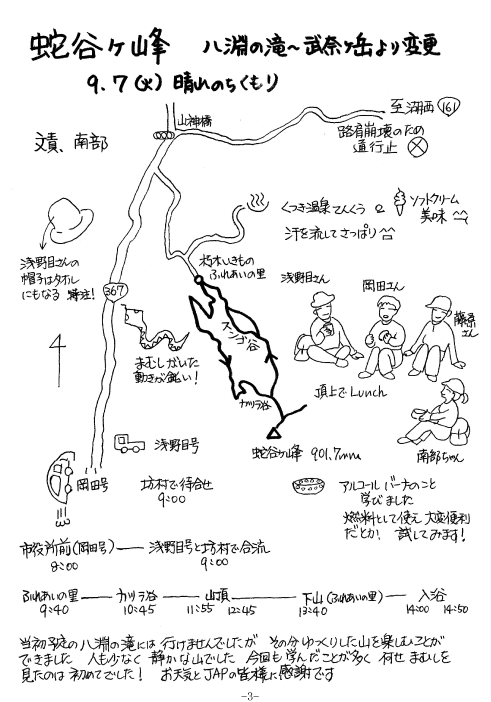 蛇谷ヶ峰 八淵の滝～武奈ヶ岳より変更
9.7(火) 晴れのちくもり
山神橋
至湖西 161
路肩崩壊のため
通行止
文責、南部
くつき温泉てんくう
ソフトクリーム
美味
汗を流してさっぱり
浅野目さんの
帽子はタオル
にもなる 特注!
朽木いきもの
ふれあいの里
367
浅野目さん
岡田さん
藤原
さん
スンゴ谷
まむしがいた
動きが鈍い!
カツラ谷
頂上でLunch
蛇谷ヶ峰 901.7mm
南部ちゃん
浅野目号
岡田号
坊村で待合せ
9:00
アルコールバーナのこと
学びました
燃料として使え 大変便利
だとか! 試してみます!
市役所前(岡田号)――浅野目号と坊村で合流
8:00 9:00
ふれあいの里――カツラ谷――山頂――下山(ふれあいの里)――入浴
9:40 10:45 11:55 12:45 13:40 14:00 14:50
当初予定の八淵の滝には行けませんでしたが その分ゆっくりした山を楽しむことが
できました 人も少なく 静かな山でした 今回も学んだことが多く 何せまむしを
見たのは初めてでした! お天気とJAPの皆様に感謝です
-3-